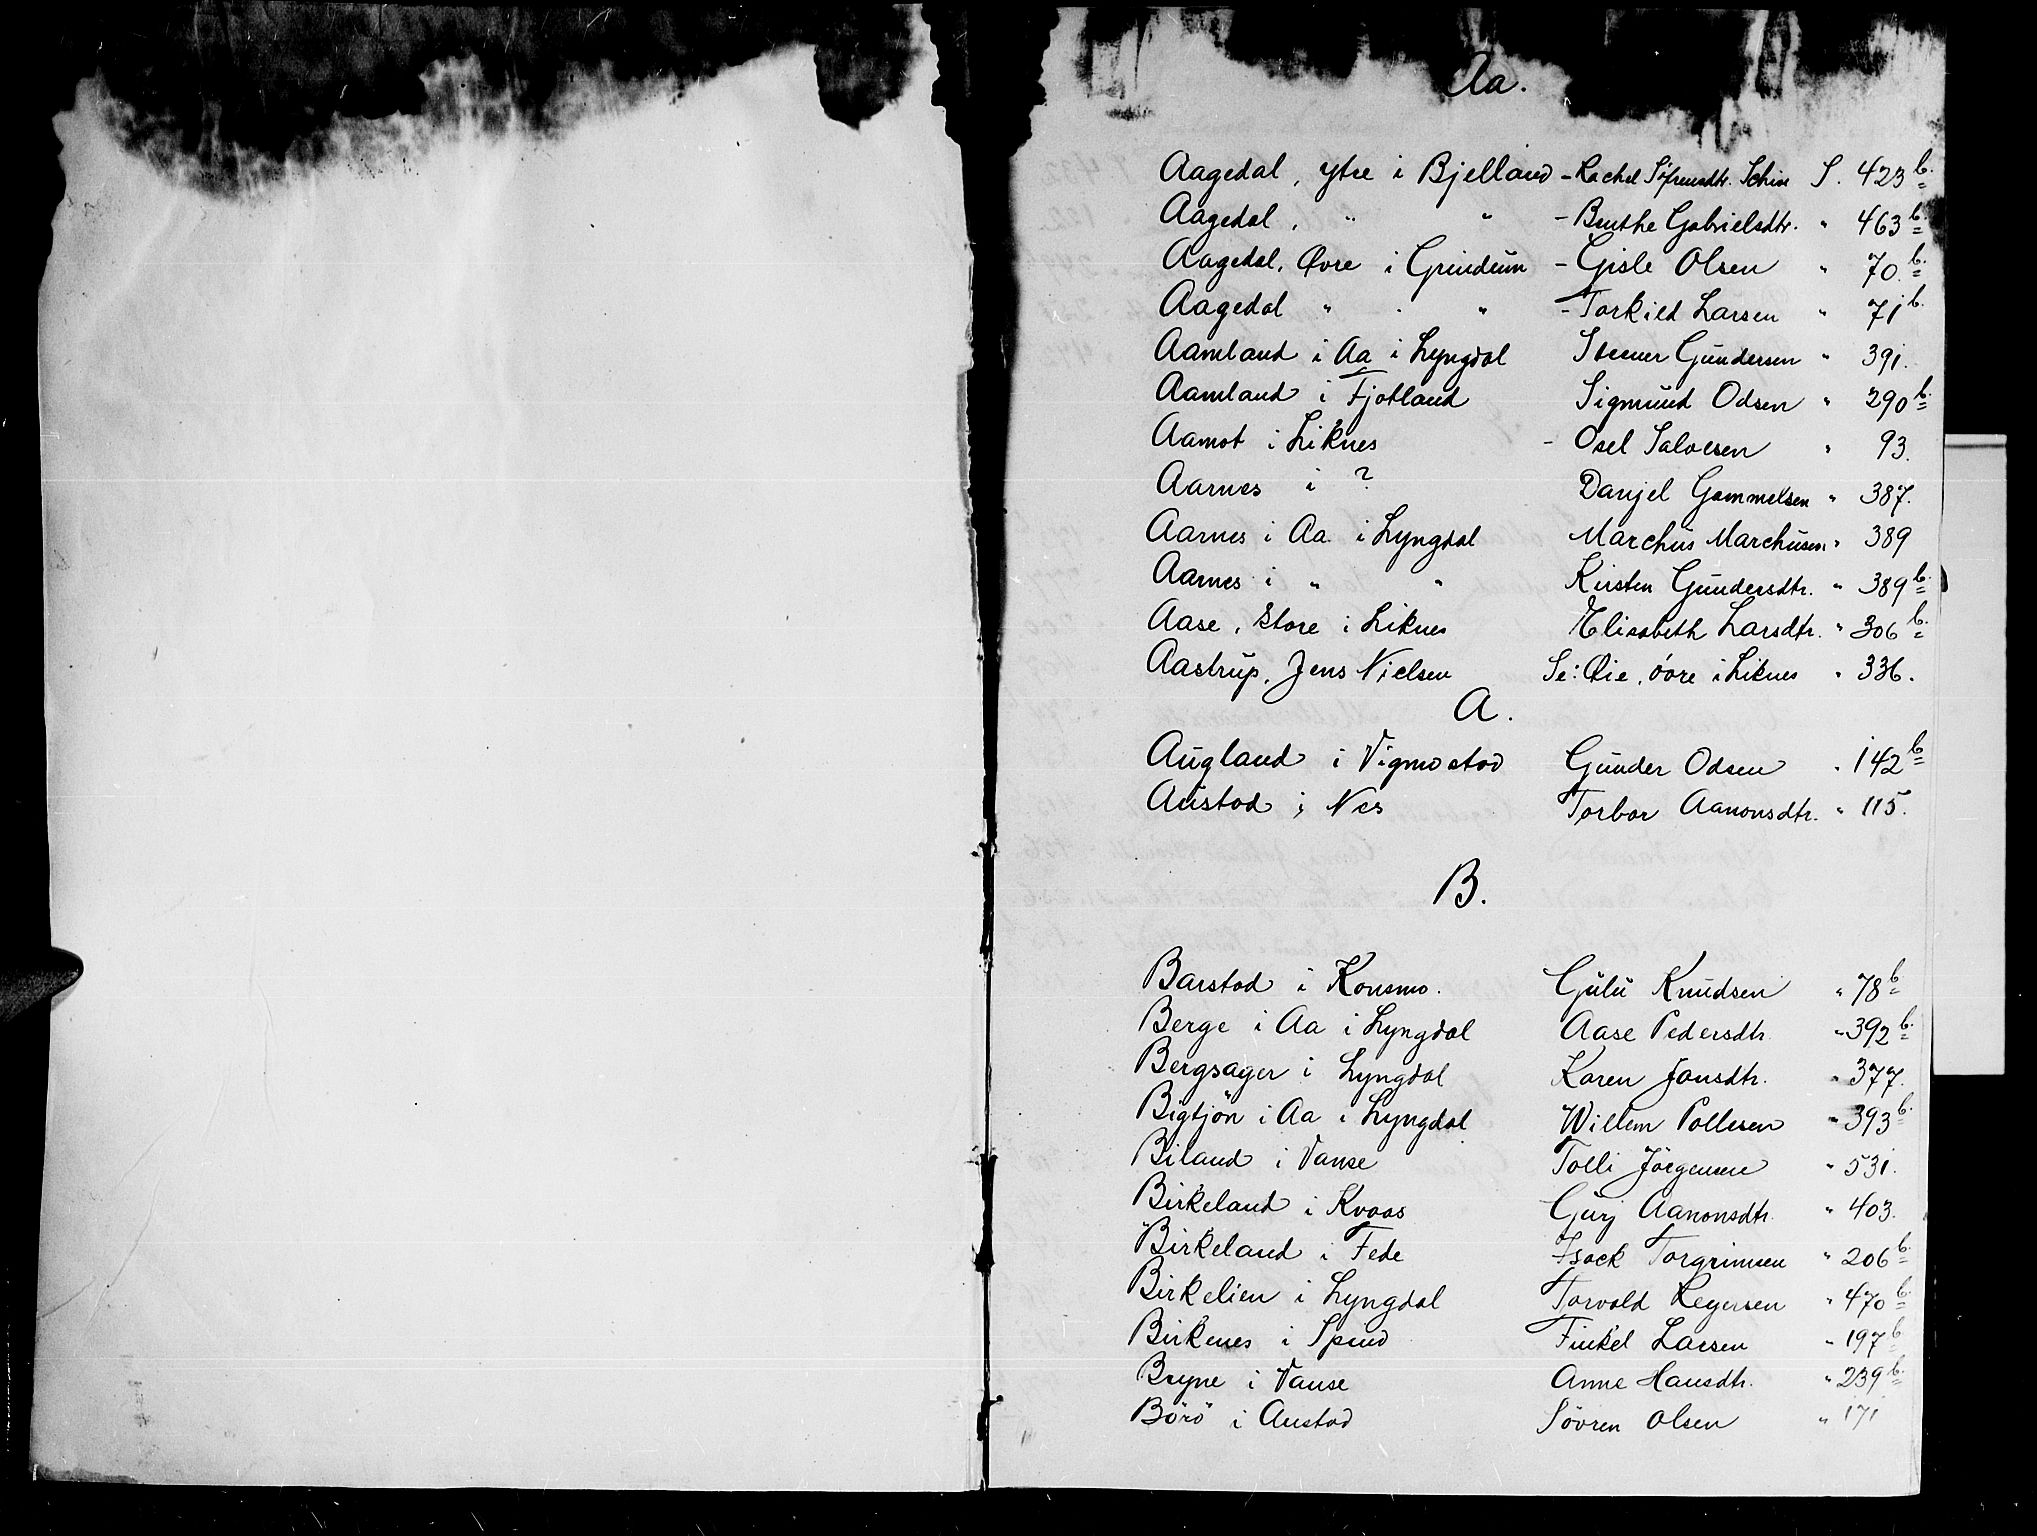 Aa.
Aagedal, ytre i Bjelland - Rachel Sifrensdtr. S. 423 b.
Aagedal, " " - Benthe Gabrielsdtr. " 463 b
Aagedal, Øvre i Grindum - Gisle Olsen " 70 b.
Aagedal " " - Torkild Larsen " 71 b.
Aamland i Aa i Lyngdal Steener Gundersen " 391.
Aamland i Fjotland Sigmund Odsen " 290 b.
Aamot i Liknes - Osel Salvesen " 93.
Aarnes i ? Danjel Gammelsen " 387.
Aarnes i Aa i Lyngdal Marchus Marchusen " 389
Aarnes i " " Kirsten Gundersdtr. " 389 b.
Aase, Store i Liknes Elisabeth Larsdtr. " 306 b.
Aastrup, Jens Nielsen Se: Øie, övre i Liknes " 336.
A.
Augland i Vigmostad Gunder Odsen " 142 b
Austad i Nes Torbor Aanonsdtr. " 115.
B.
Barstad i Konsmo. Gulu Knudsen " 78 b
Berge i Aa i Lyngdal Aase Pedersdtr. " 392 b.
Bergsager i Lyngdal Karen Jansdtr. " 377.
Bigtjön i Aa i Lyngdal Willem Pollesen " 393 b.
Biland i Vanse Tolli Jörgensen " 531.
Birkeland i Kvaas Gurj Aanonsdtr. " 403.
Birkeland i Fede Isack Torgrimsen " 206 b.
Birkelien i Lyngdal Torvald Regersen " 470 b.
Birkenes i Spind Finkel Larsen " 197 b
Bryne i Vanse Anne Hansdtr. " 239 b.
Börö i Austad Sövren Olsen " 171